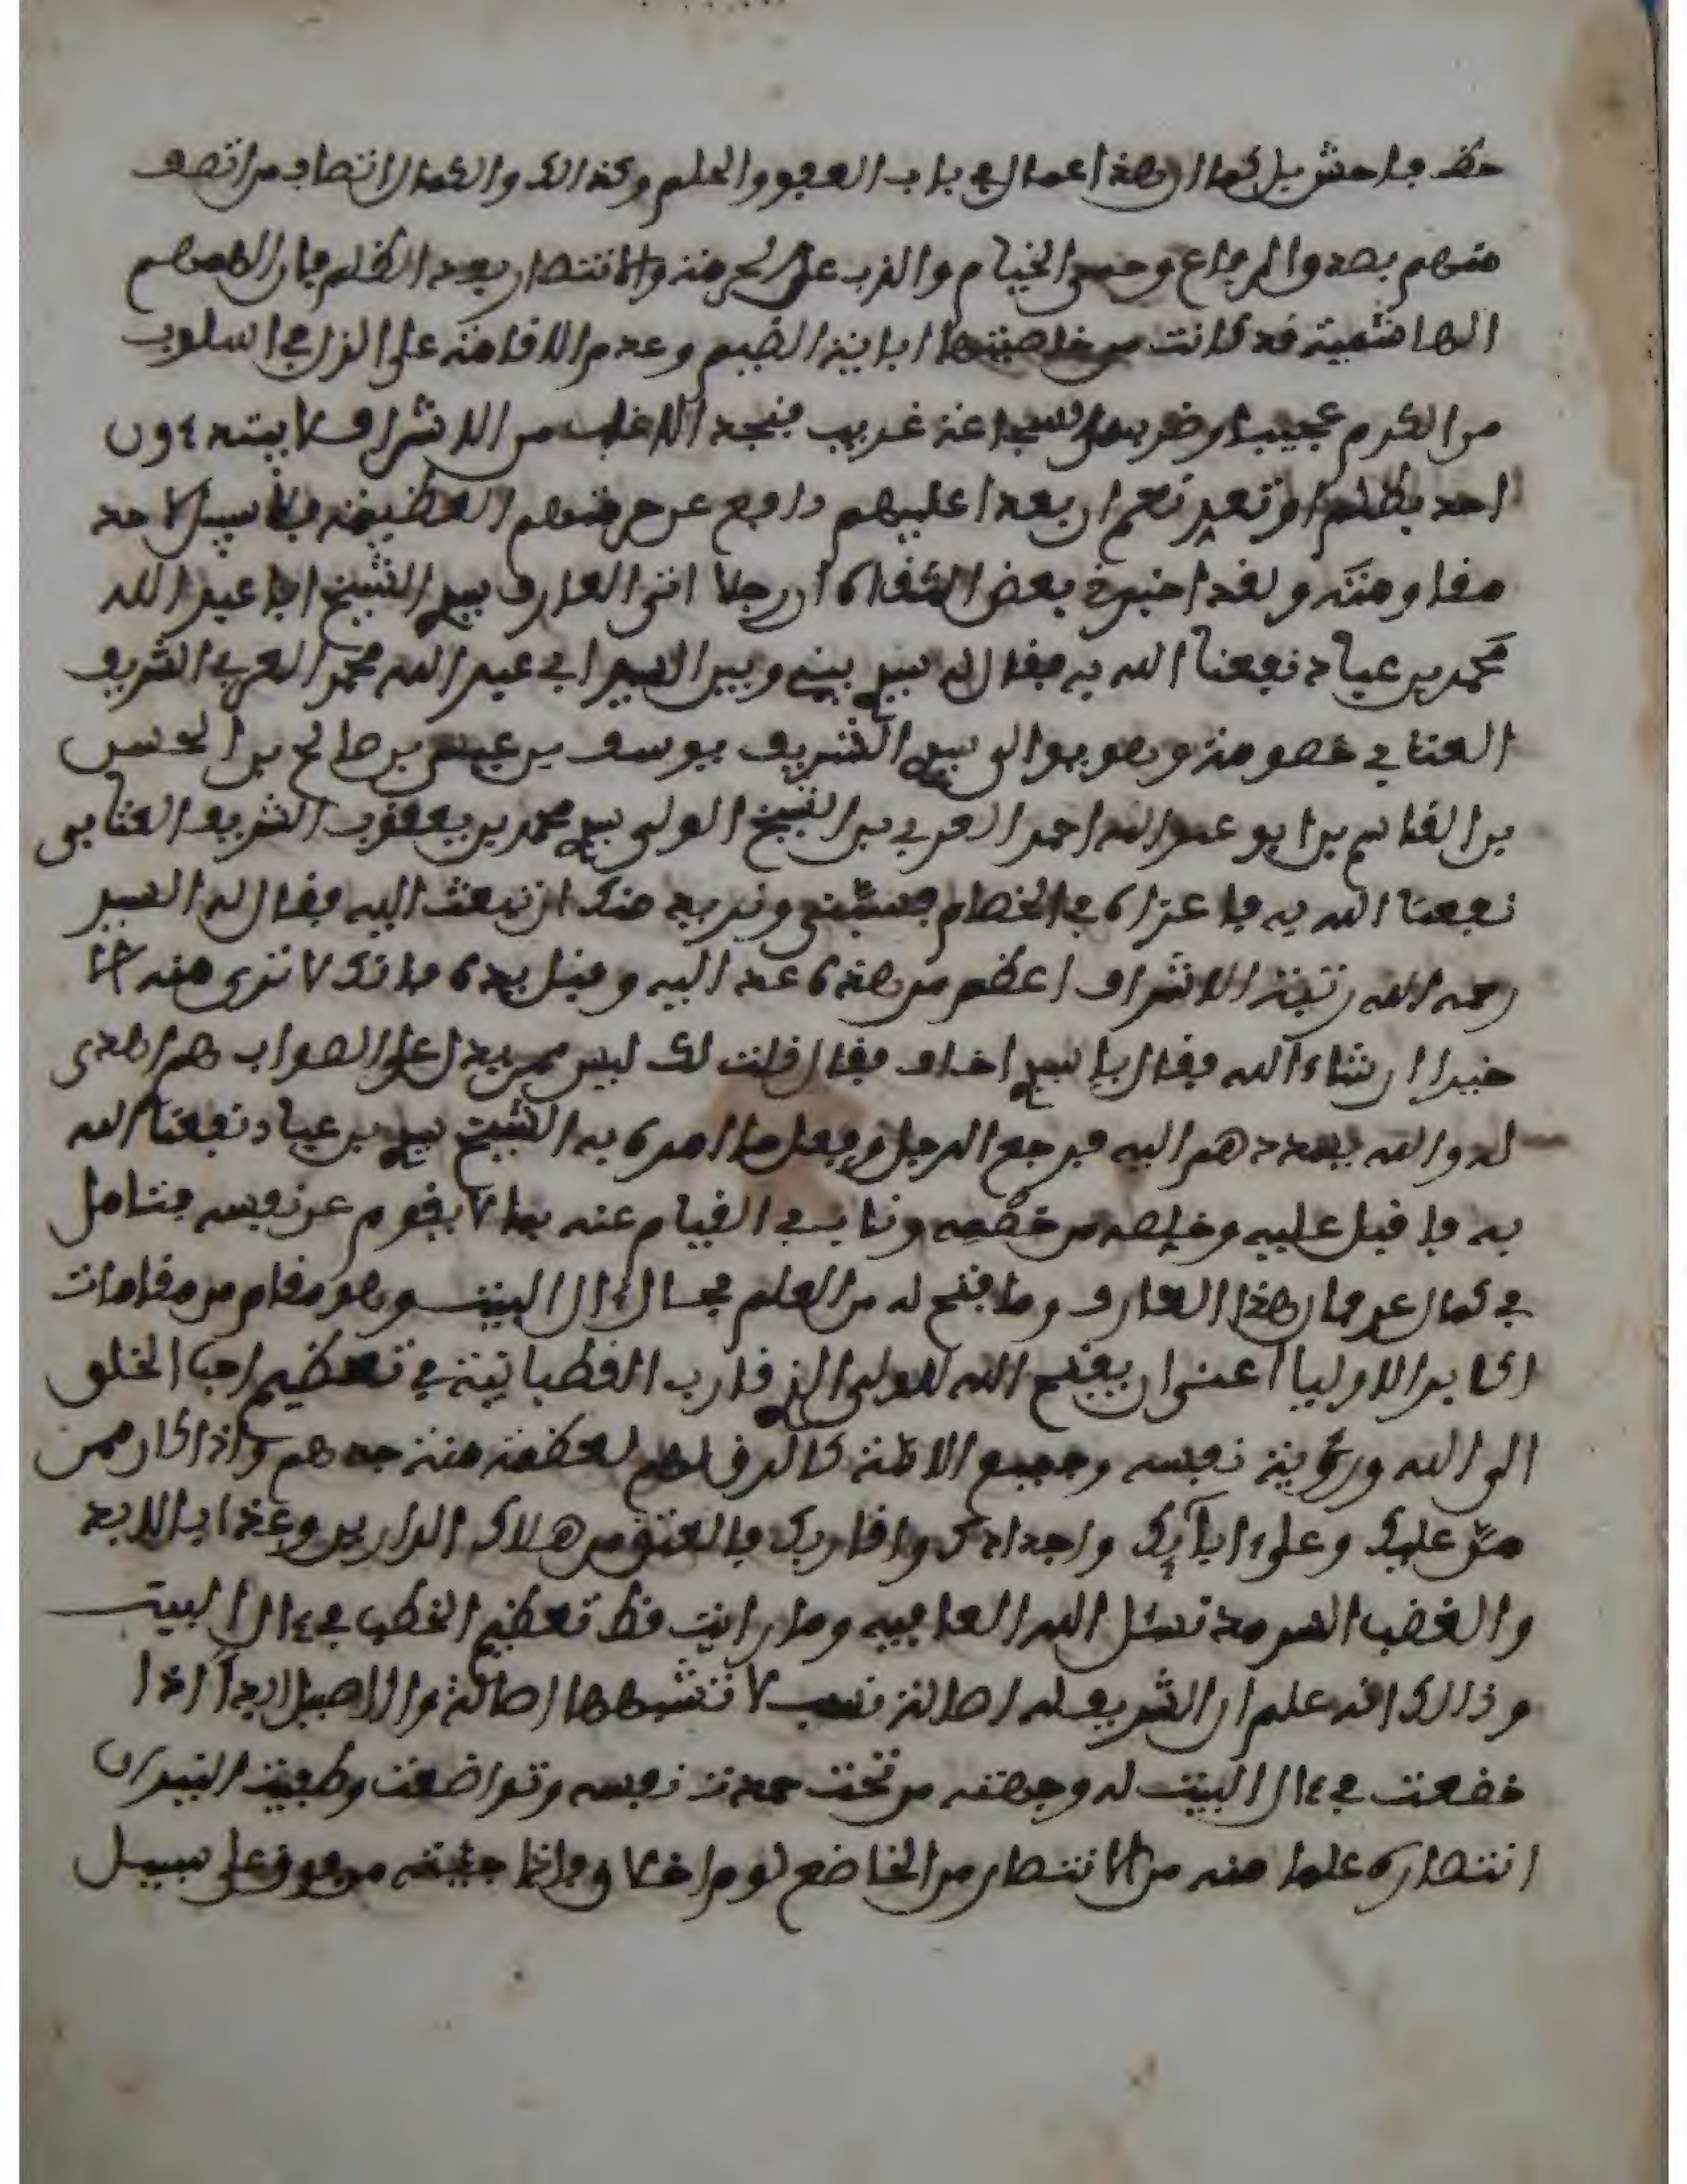 حظ فاحش بل كما ان هذا عمال في باب العفو والحلم وكذالك والكمال اتصاف من اتصف
منهم بهذه والدفاع وحمى الخيام والذب على الحرمة والانتصار بعد الظلم فان الهمم
الهاشمية قد كانت من خاصيتها اباية الضيم وعدم الاقامة على الزل في اسلوب
من الكرم عجيب وضرب من الشجاعة غريب فنجد الاغلب من الاشراف لا يبتدءون
احد بظلم او تعد نعم ان بعدا عليهم دافع عن حرمتهم العظيمة فلا سبيل لاحد
مقاومته ولقد اخبرني بعض الثقاة ان رجلا اتى العارف سيدي الشيخ ابا عبد الله
محمد بن عباد نفعنا الله به فقال له سيدي بيني وبين السيد ابي عبد الله محمد العربي الشريف
العنابي خصومة وهو مولى سيدي الشريف يوسف بن عيسى بن صالح بن الحسن
بن القاسم بن ابو عبد الله احمد العربي بن الشيخ الولي سيدي محمد بن يعقوب الشريف العنابي
نفعنا الله به فاعزاه في الخصام فسبني ونريد منك ان نبعث اليه فقال له السيد
رحمه الله رتبة الاشراف اعظم من هذه عد اليه وقبل يده فانك لا ترى منه الا
خيرا ان شاء الله فقال يا سيدي اخاف فقال قلت لك ليس يدل على الصواب هم اهدى
له والله يهدهم اليه فرجع الرجل وفعل ما امره به الشيخ سيدي بن عباد نفعنا الله
به فاقبل عليه وخلصه من خصمه وناب في القيام عنه بما لا يقوم عن نفسه فتامل
في كمال عرفان هذا العارف وما فتح له من العلم بحال ءال البيت وهو مقام من مقامات
اكابر الاوليا اعنى ان يفتح الله للولي الذي قارب القطبانية في تعظيم احب الخلق
الى الله ورؤية نفسه وجميع الامة كالرق لهم لعظمة منة جدهم واذا كان ممن
من عليك وعلى ءابآيك واجدادك واقاربك بالعتق من هلاك الدارين وعذاب الابد
والغضب السرمد نسئل الله العافيه وما رايت قط تعظيم القطب في ءال البيت
وذالك انه علم ان الشريف له اصالة نسب لا تشبهها اصالة والاصيل ابدا اذا
خضعت في ءال البيت له وجهته من تحت حمدت نفسه وتواضعت وطفيت النيران
انتصاره علما منه من الانتصار من الخاضع لوم اخلاق وانما جئيته من فوق على سبيل